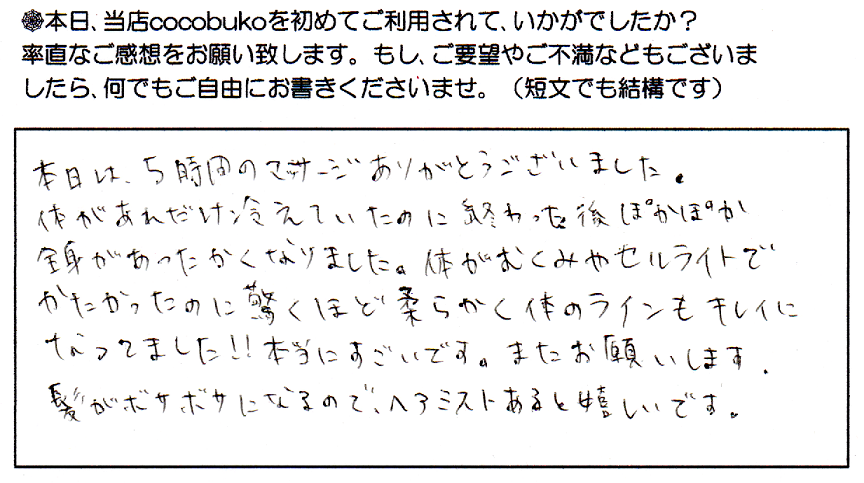 ●本日、当店cocobukoを初めてご利用されて、いかがでしたか？
率直なご感想をお願い致します。もし、ご要望やご不満などもございま
したら、何でもご自由にお書きくださいませ。（短文でも結構です）
本日は、5時間のマッサージありがとうございました。
体があれだけ冷えていたのに終わった後ぽかぽか
全身があったかくなりました。体がむくみやセルライトで
かたかったのに驚くほど柔らかく体のラインもキレイに
なってました!!本当にすごいです。またお願いします.
髪がボサボサになるので、ヘアミストあると嬉しいです。